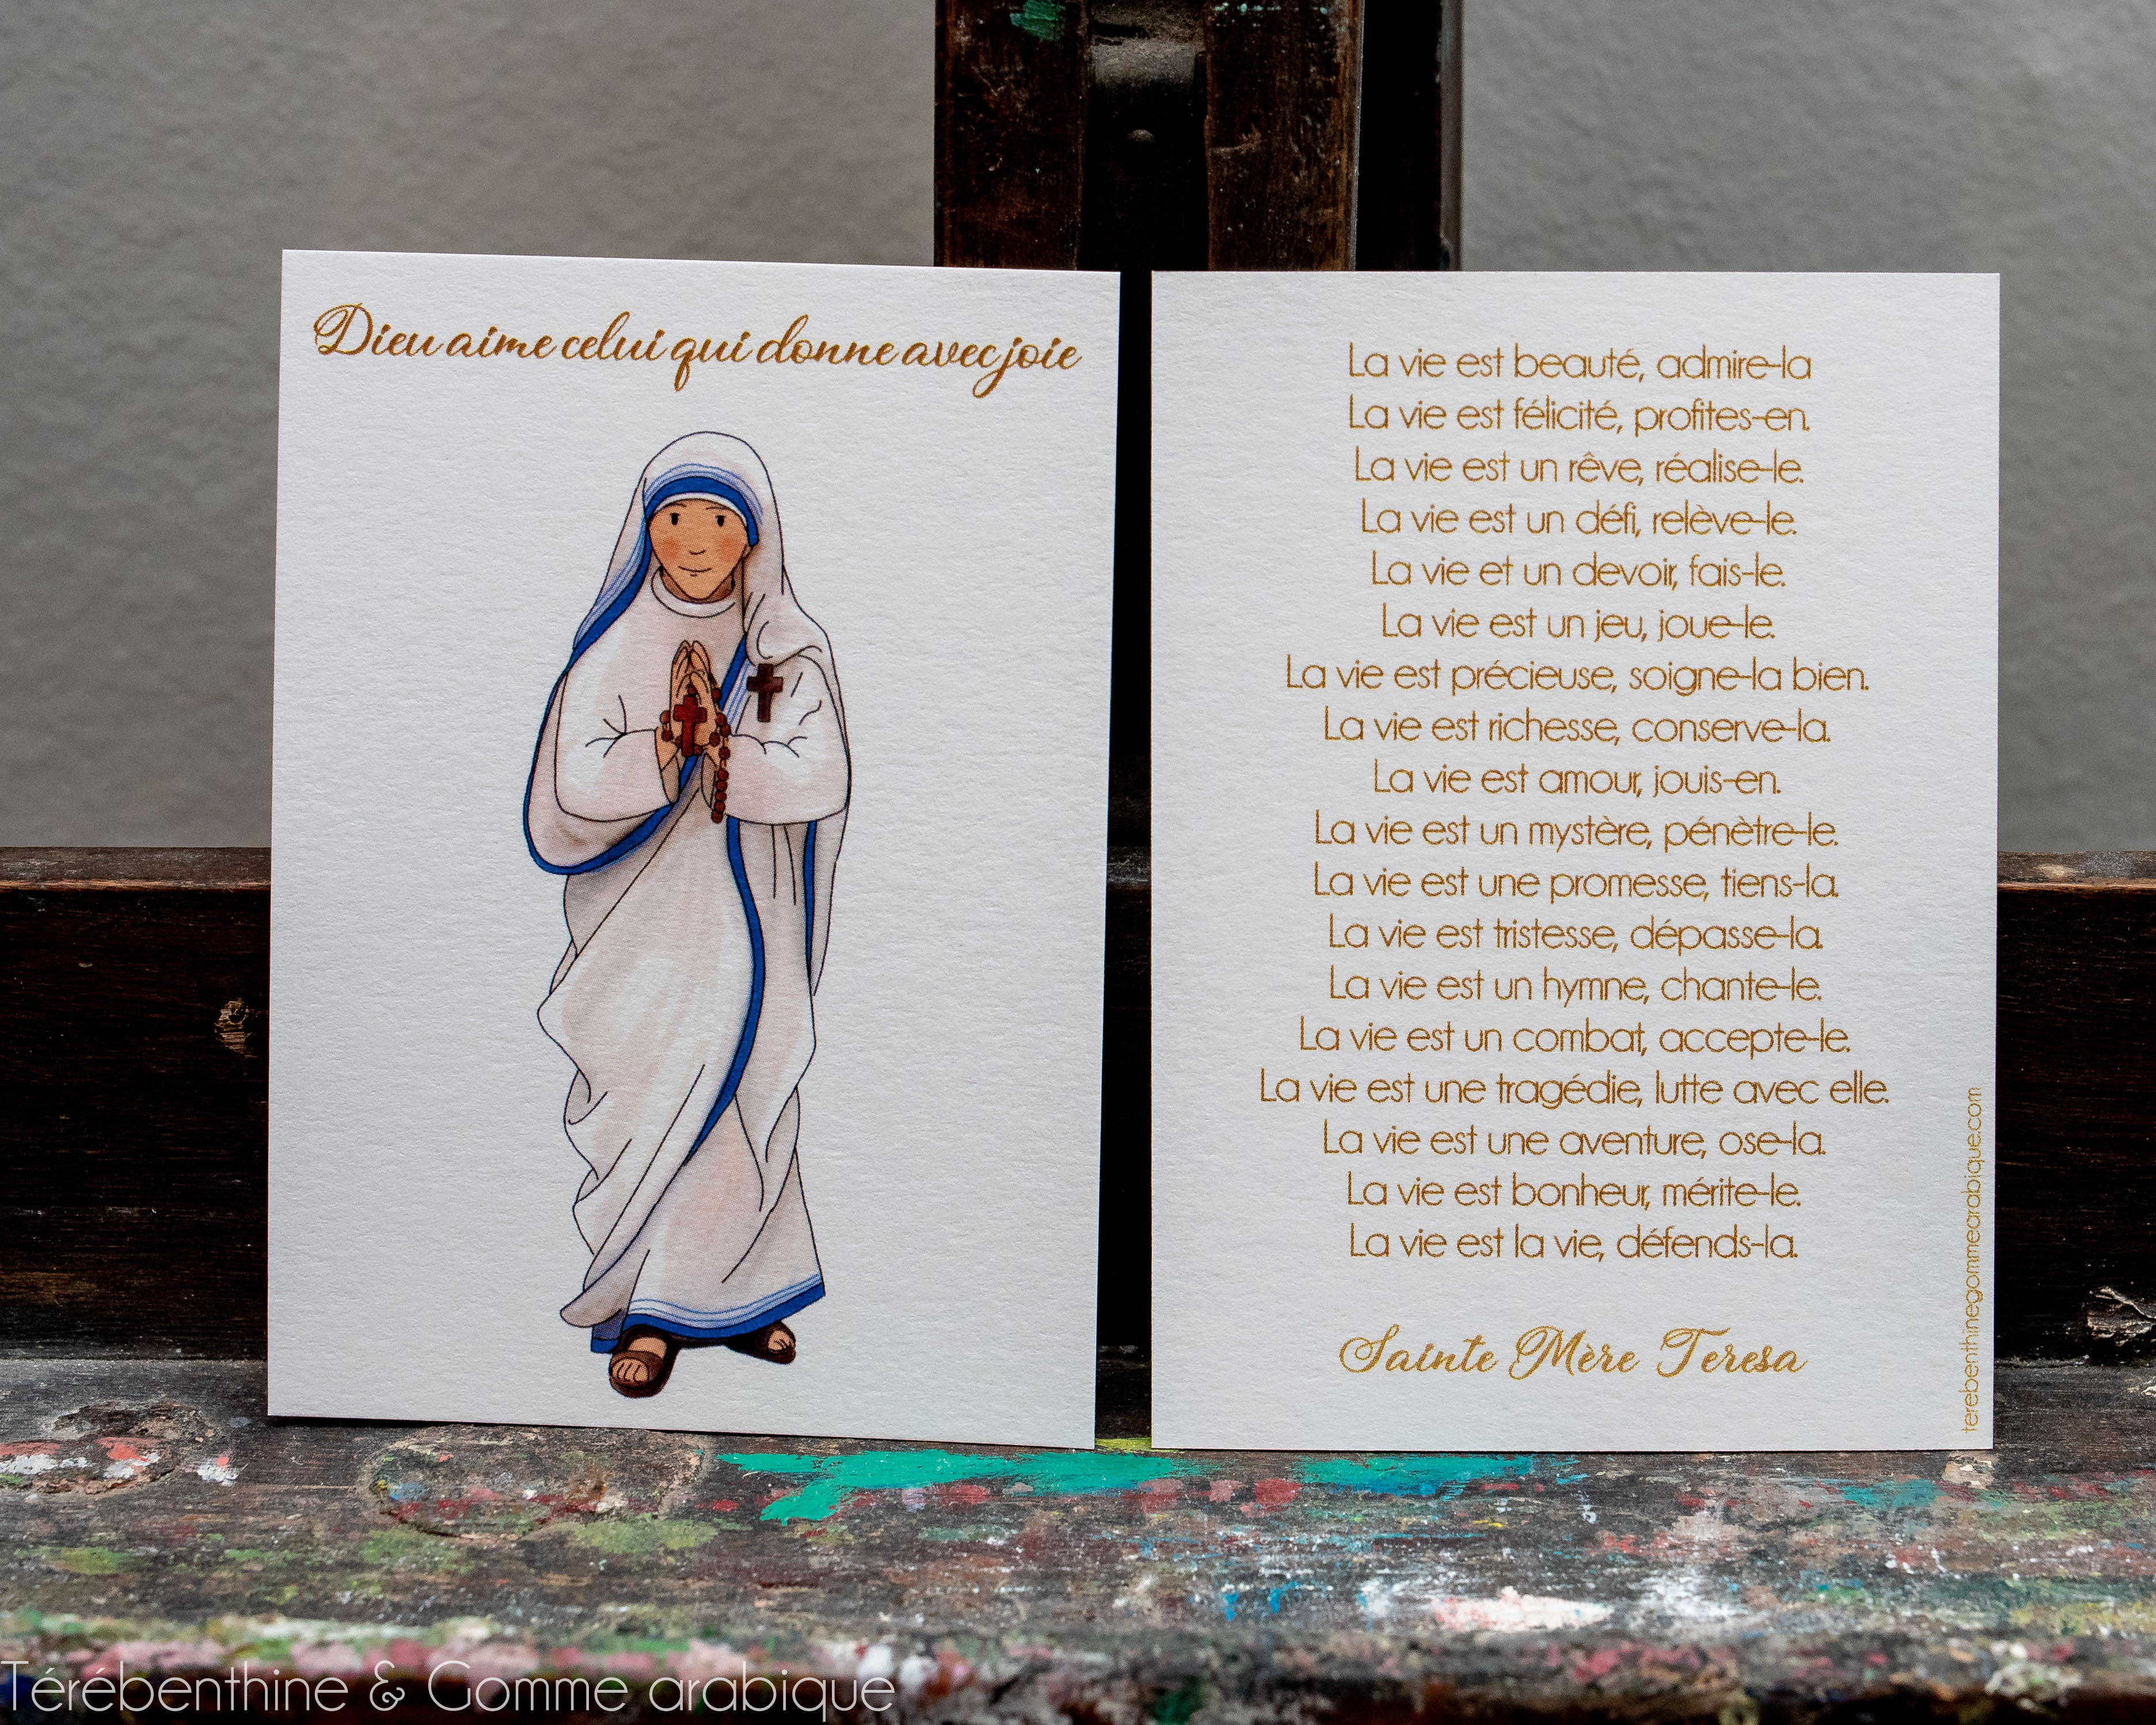 Dieu aime celui qui donne avec joie
La vie est beauté, admire-la
La vie est félicité, profites-en.
La vie est un rêve, réalise-le.
La vie est un défi, relève-le.
La vie et un devoir, fais-le.
La vie est un jeu, joue-le.
La vie est précieuse, soigne-la bien.
La vie est richesse, conserve-la.
La vie est amour, jouis-en.
La vie est un mystère, pénètre-le.
La vie est une promesse, tiens-la.
La vie est tristesse, dépasse-la.
La vie est un hymne, chante-le.
La vie est un combat, accepte-le.
La vie est une tragédie, lutte avec elle.
La vie est une aventure, ose-la.
La vie est bonheur, mérite-le.
La vie est la vie, défends-la.
Sainte Mère Teresa
terebenthinegommearabique.com
Térébenthine & Gomme arabique